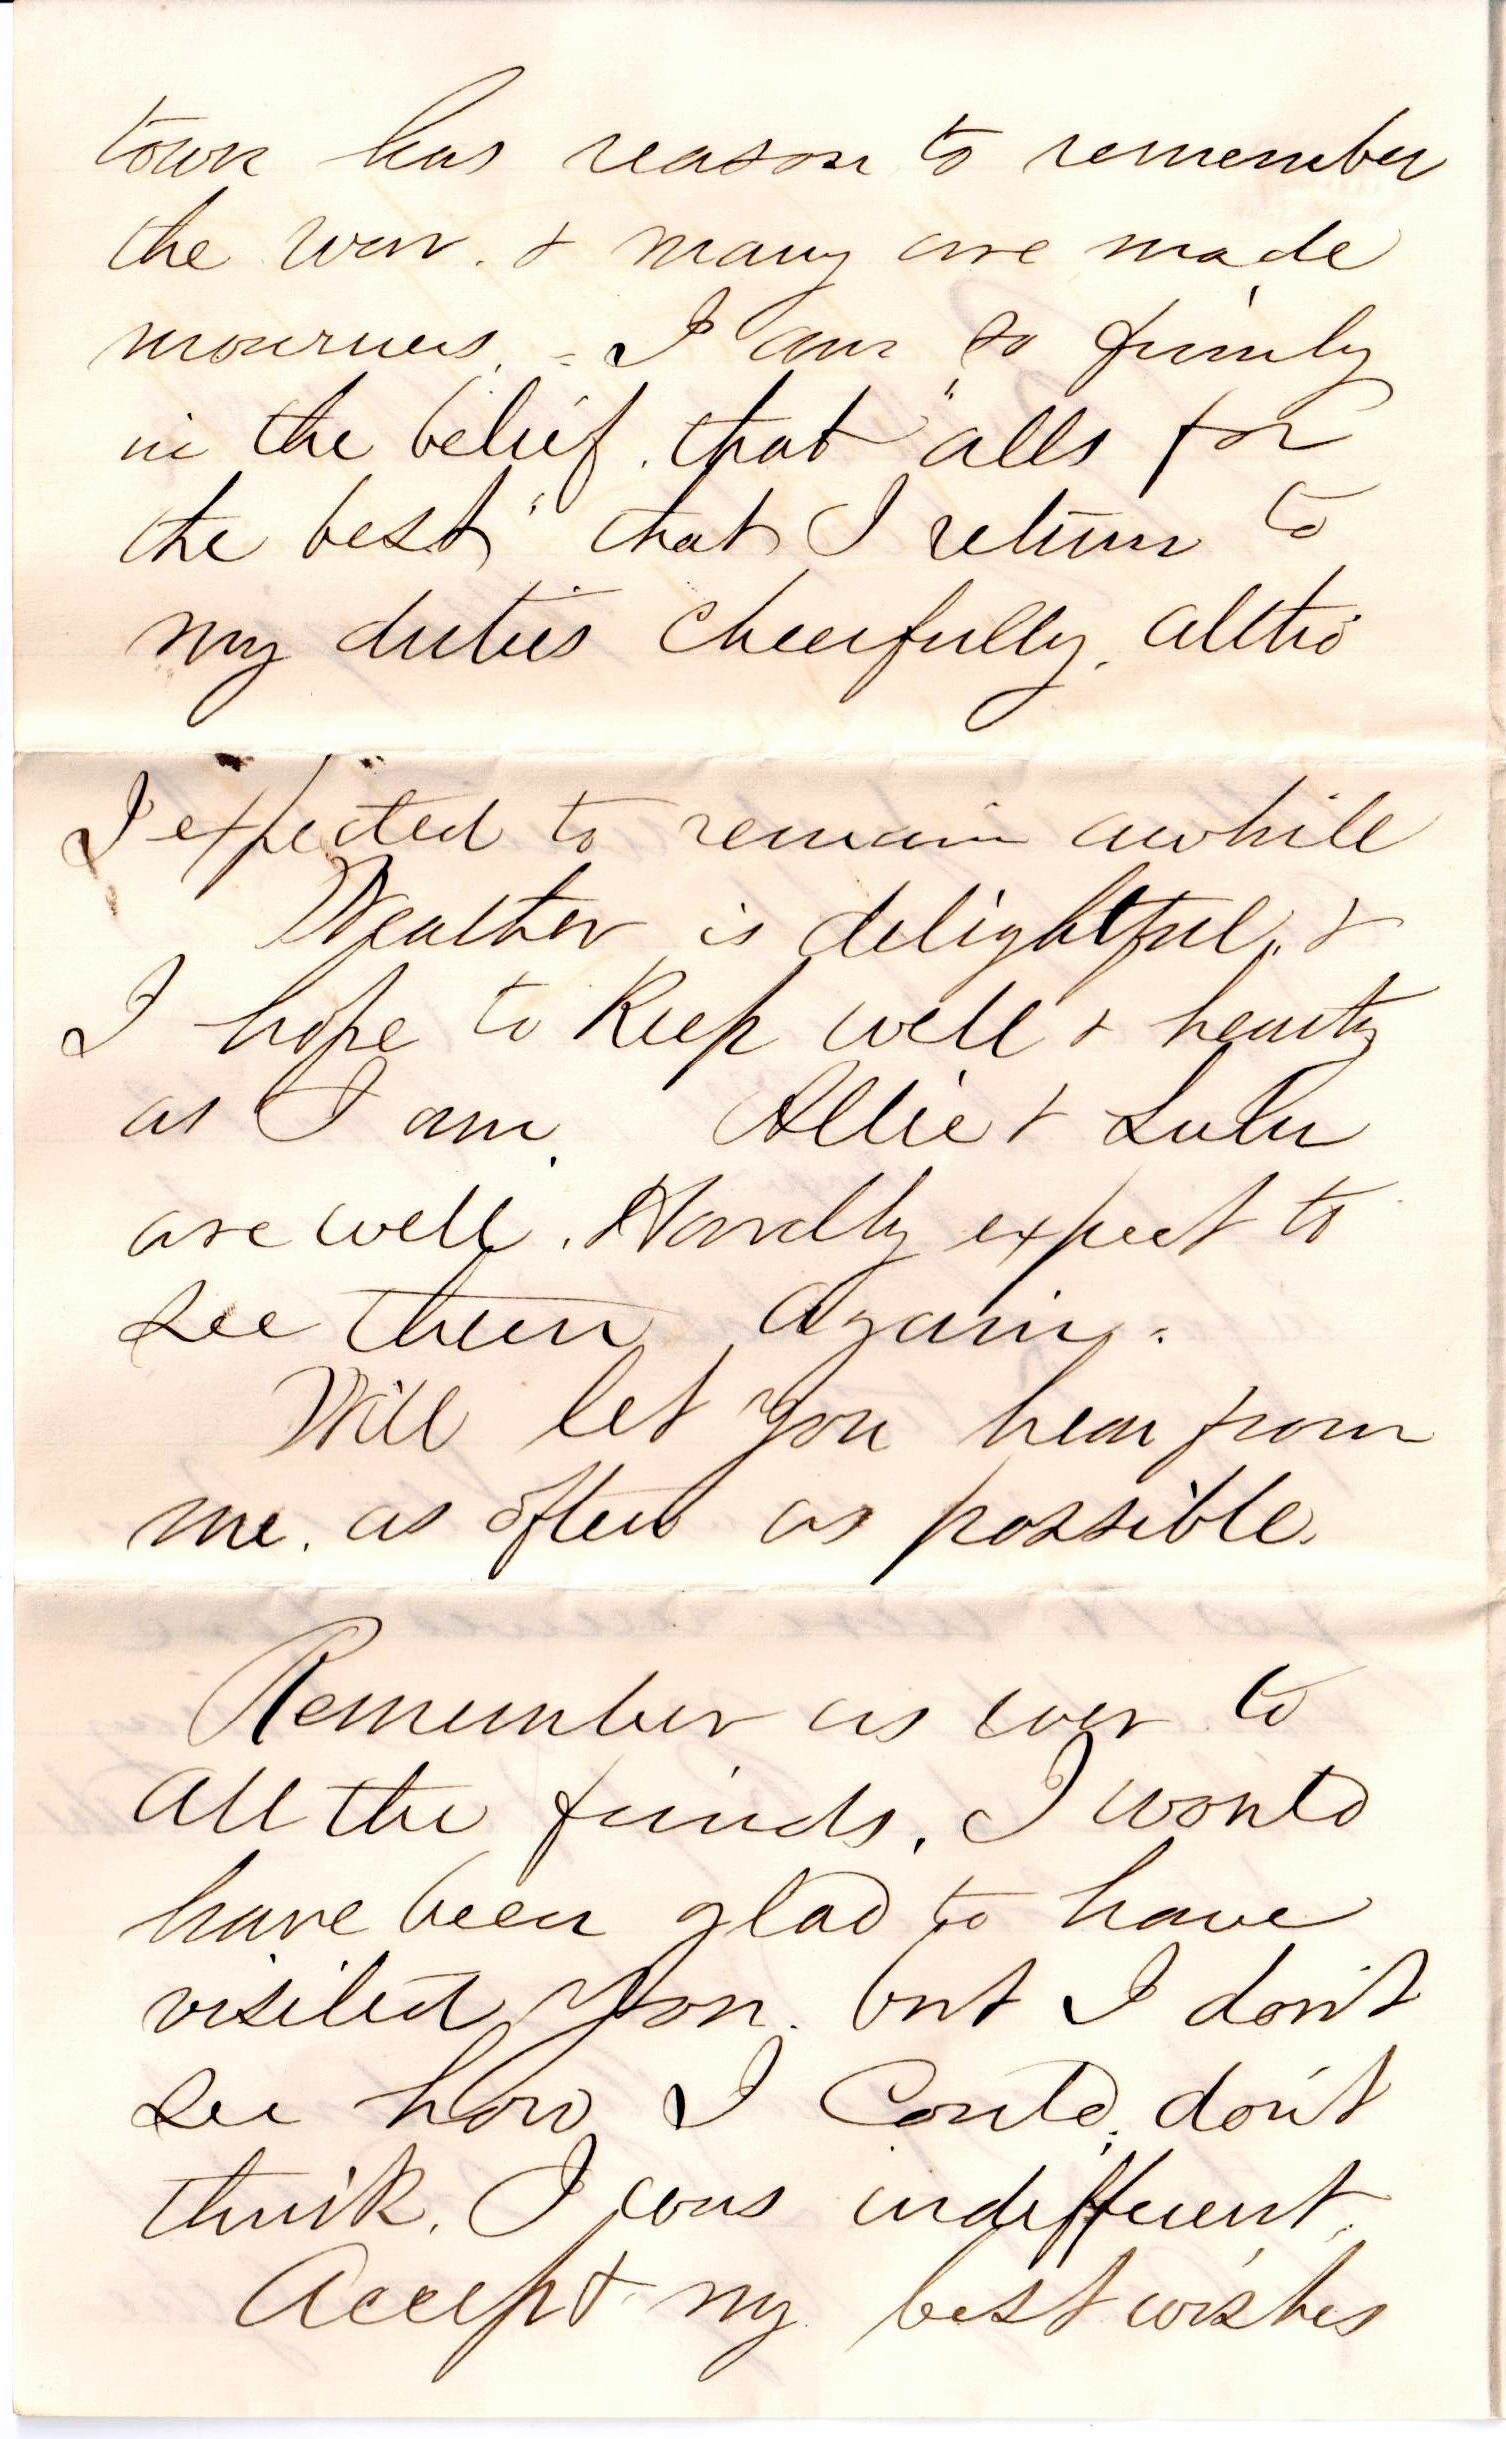 town has reason to remember
the war. & many are made
mourners. = I am so firmly
in the belief. that "alls for
the best" that I return to
my duties cheerfully. altho
I expected to remain awhile
Weather is delightful, &
I hope to Keep well & hearty
as I am. Allie & Lulu
are well. Hardly expect to
see them again.
Will let you hear from
me. as often as possible.
Remember as ever to
all the friends. I would
have been glad to have
visited you. but I don't
see how I Could. don't
think. I was indifferent.
Accept my best wishes